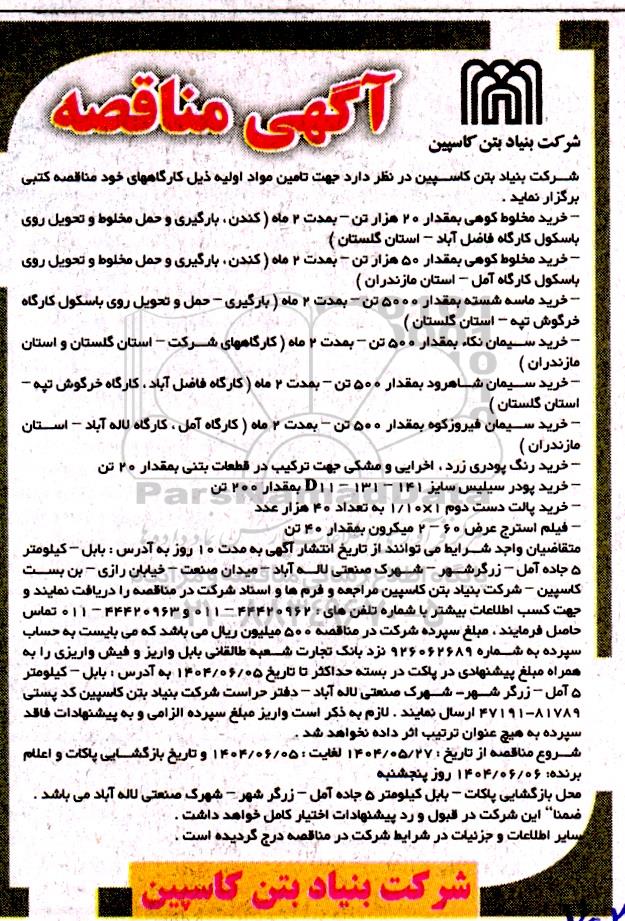 آگهی مناقصه
شرکت بنیاد بتن کاسپین
شرکت بنیاد بتن کاسپین در نظر دارد جهت تامین مواد اولیه ذیل کارگاههای خود مناقصه کتبی
برگزار نماید .
– خرید مخلوط کوهی بمقدار ۲۰ هزار تن – بمدت ۲ ماه ( کندن ، بارگیری و حمل مخلوط و تحویل روی
باسکول کارگاه فاضل آباد – استان گلستان )
– خرید مخلوط کوهی بمقدار ۵۰ هزار تن – بمدت ۲ ماه ( کندن ، بارگیری و حمل مخلوط و تحویل روی
باسکول کارگاه آمل – استان مازندران )
– خرید ماسه شسته بمقدار ۵۰۰۰ تن – بمدت ۲ ماه ( بارگیری – حمل و تحویل روی باسکول کارگاه
خرگوش تپه – استان گلستان )
– خرید سیمان نکاء بمقدار ۵۰۰ تن – بمدت ۲ ماه ( کارگاههای شرکت – استان گلستان و استان
مازندران )
– خرید سیمان شاهرود بمقدار ۵۰۰ تن – بمدت ۲ ماه ( کارگاه فاضل آباد ، کارگاه خرگوش تپه –
استان گلستان )
– خرید سیمان فیروزکوه بمقدار ۵۰۰ تن – بمدت ۲ ماه ( کارگاه آمل ، کارگاه لاله آباد – استان
مازندران )
– خرید رنگ پودری زرد ، اخرایی و مشکی جهت ترکیب در قطعات بتنی بمقدار ۲۰ تن
– خرید پودر سیلیس سایز ۱۴۱ – ۱۳۱ – D۱۱ بمقدار ۲۰۰ تن
– خرید پالت دست دوم ۱×۱/۱۰ به تعداد ۴۰ هزار عدد
– فیلم استرچ عرض ۶۰ – ۲ میکرون بمقدار ۴۰ تن
متقاضیان واجد شرایط می توانند از تاریخ انتشار آگهی به مدت ۱۰ روز به آدرس : بابل – کیلومتر
۵ جاده آمل – زرگرشهر – شهرک صنعتی لاله آباد – میدان صنعت – خیابان رازی – بن بست
کاسپین – شرکت بنیاد بتن کاسپین مراجعه و فرم ها و اسناد شرکت در مناقصه را دریافت نمایند و
جهت کسب اطلاعات بیشتر با شماره تلفن های : ۴۴۴۲۰۹۶۲ – ۰۱۱ و ۴۴۴۲۰۹۶۳ – ۰۱۱ تماس
حاصل فرمایند . مبلغ سپرده شرکت در مناقصه ۵۰۰ میلیون ریال می باشد که می بایست به حساب
سپرده به شماره ۹۲۶۰۶۲۶۸۹ نزد بانک تجارت شعبه طالقانی بابل واریز و فیش واریزی را به
همراه مبلغ پیشنهادی در پاکت در بسته حداکثر تا تاریخ ۱۴۰۴/۰۶/۰۵ به آدرس : بابل – کیلومتر
۵ آمل – زرگر شهر– شهرک صنعتی لاله آباد – دفتر حراست شرکت بنیاد بتن کاسپین کد پستی
۸۱۷۸۹–۴۷۱۹۱ ارسال نمایند . لازم به ذکر است واریز مبلغ سپرده الزامی و به پیشنهادات فاقد
سپرده به هیچ عنوان ترتیب اثر داده نخواهد شد .
شروع مناقصه از تاریخ : ۱۴۰۴/۰۵/۲۷ لغایت : ۱۴۰۴/۰۶/۰۵ و تاریخ بازگشایی پاکات و اعلام
برنده: ۱۴۰۴/۰۶/۰۶ روز پنجشنبه
محل بازگشایی پاکات – بابل کیلومتر ۵ جاده آمل – زرگر شهر – شهرک صنعتی لاله آباد می باشد .
ضمنا" این شرکت در قبول و رد پیشنهادات اختیار کامل خواهد داشت .
سایر اطلاعات و جزئیات در شرایط شرکت در مناقصه درج گردیده است .
شرکت بنیاد بتن کاسپین
ParsNamadData